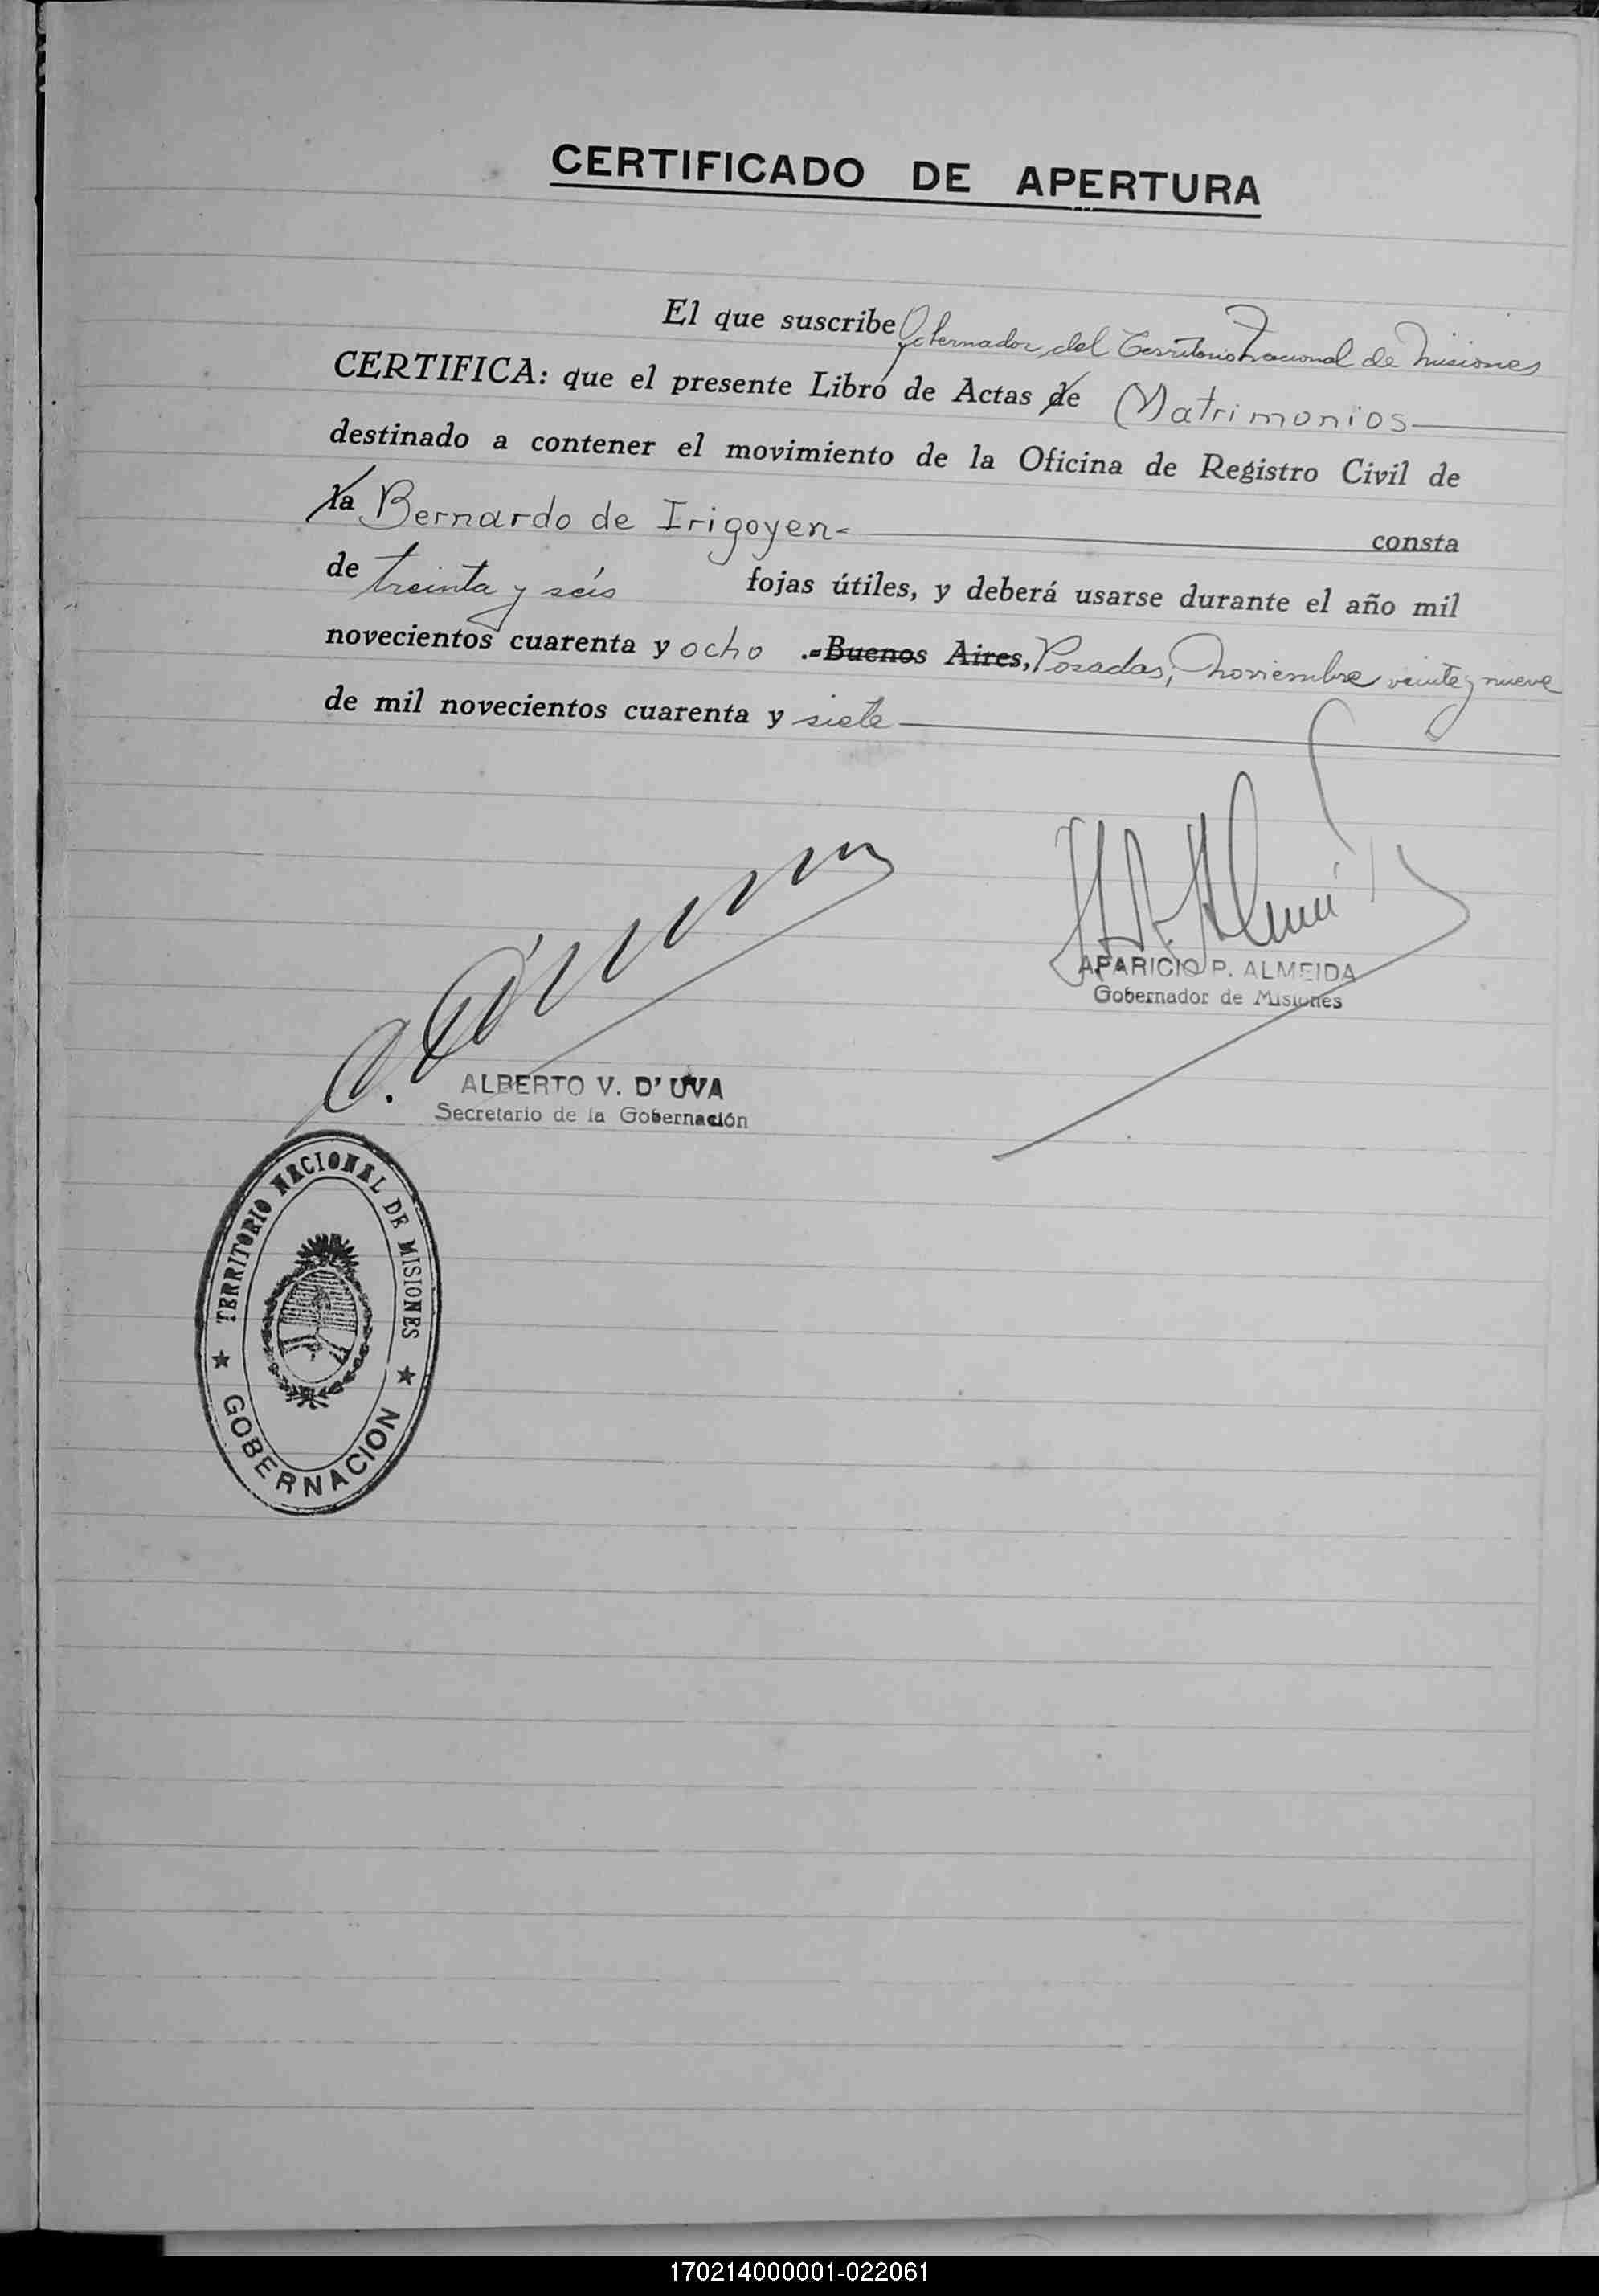 CERTIFICADO DE APERTURA
El que suscribe Gobernador del Territorio Nacional de Misiones
CERTIFICA: que el presente Libro de Actas de Matrimonios
destinado a contener el movimiento de la Oficina de Registro Civil de
la Bernardo de Irigoyen- consta
de treinta y seis fojas útiles, y deberá usarse durante el año mil
novecientos cuarenta y ocho .-Buenos Aires, Posadas, Noviembre veinte y nueve
de mil novecientos cuarenta y siete
APARICIO P. ALMEIDA
Gobernador de Misiones
ALBERTO V. D'UVA
Secretario de la Gobernación
TERRITORIO NACIONAL DE MISIONES
GOBERNACION
170214000001-022061